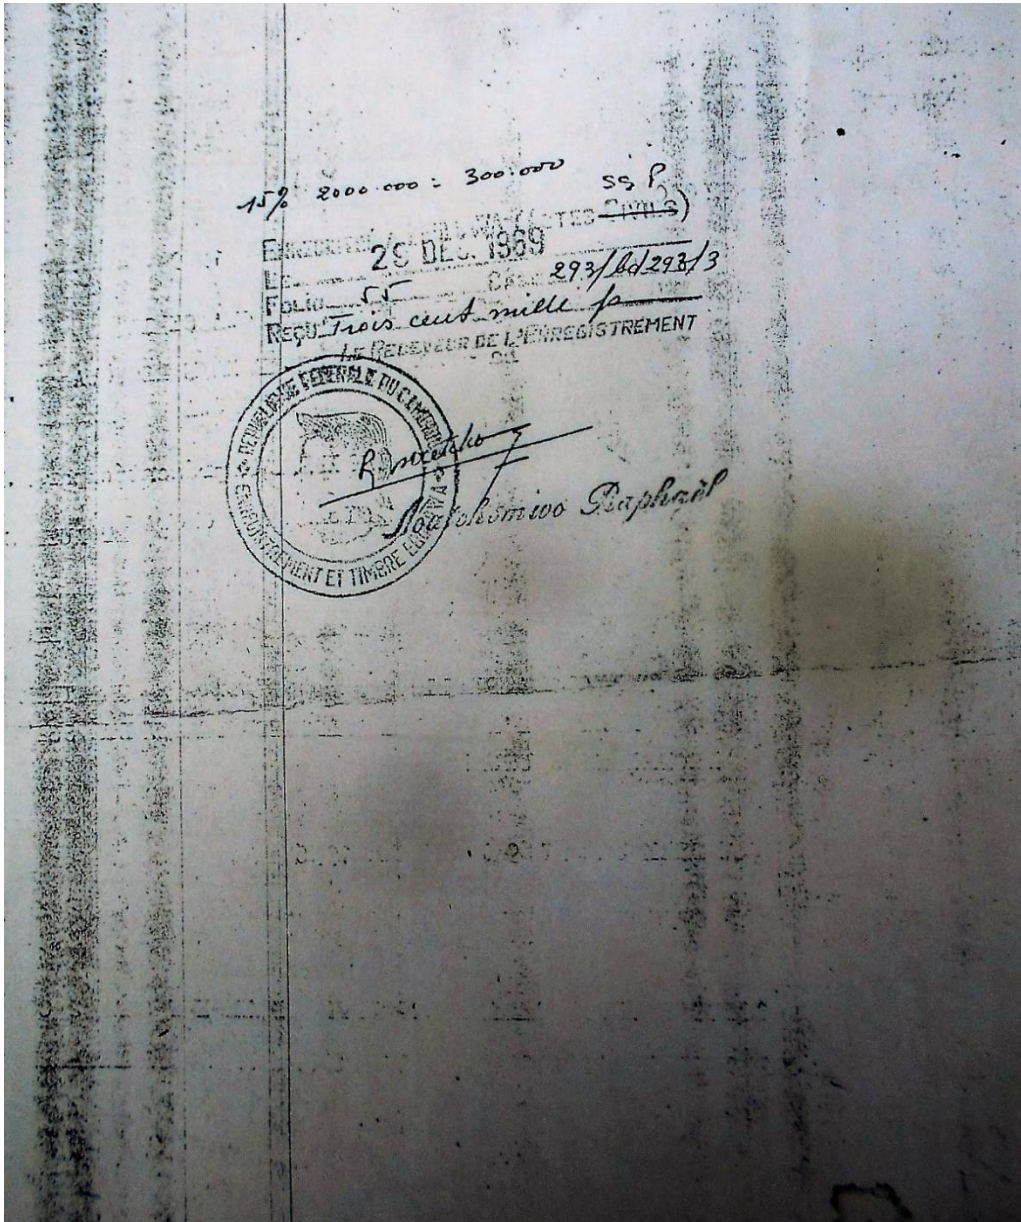 15% 2000.000 = 300.000
SS P
(ACTES CIVILS)
LE 29 DEC. 1969
FOLIO 55 CASE 293/bd293/3
REÇU Trois cent mille frs
LE RECEVEUR DE L'ENREGISTREMENT
REPUBLIQUE FEDERALE DU CAMEROUN
ENREGISTREMENT ET TIMBRE
Raphaël